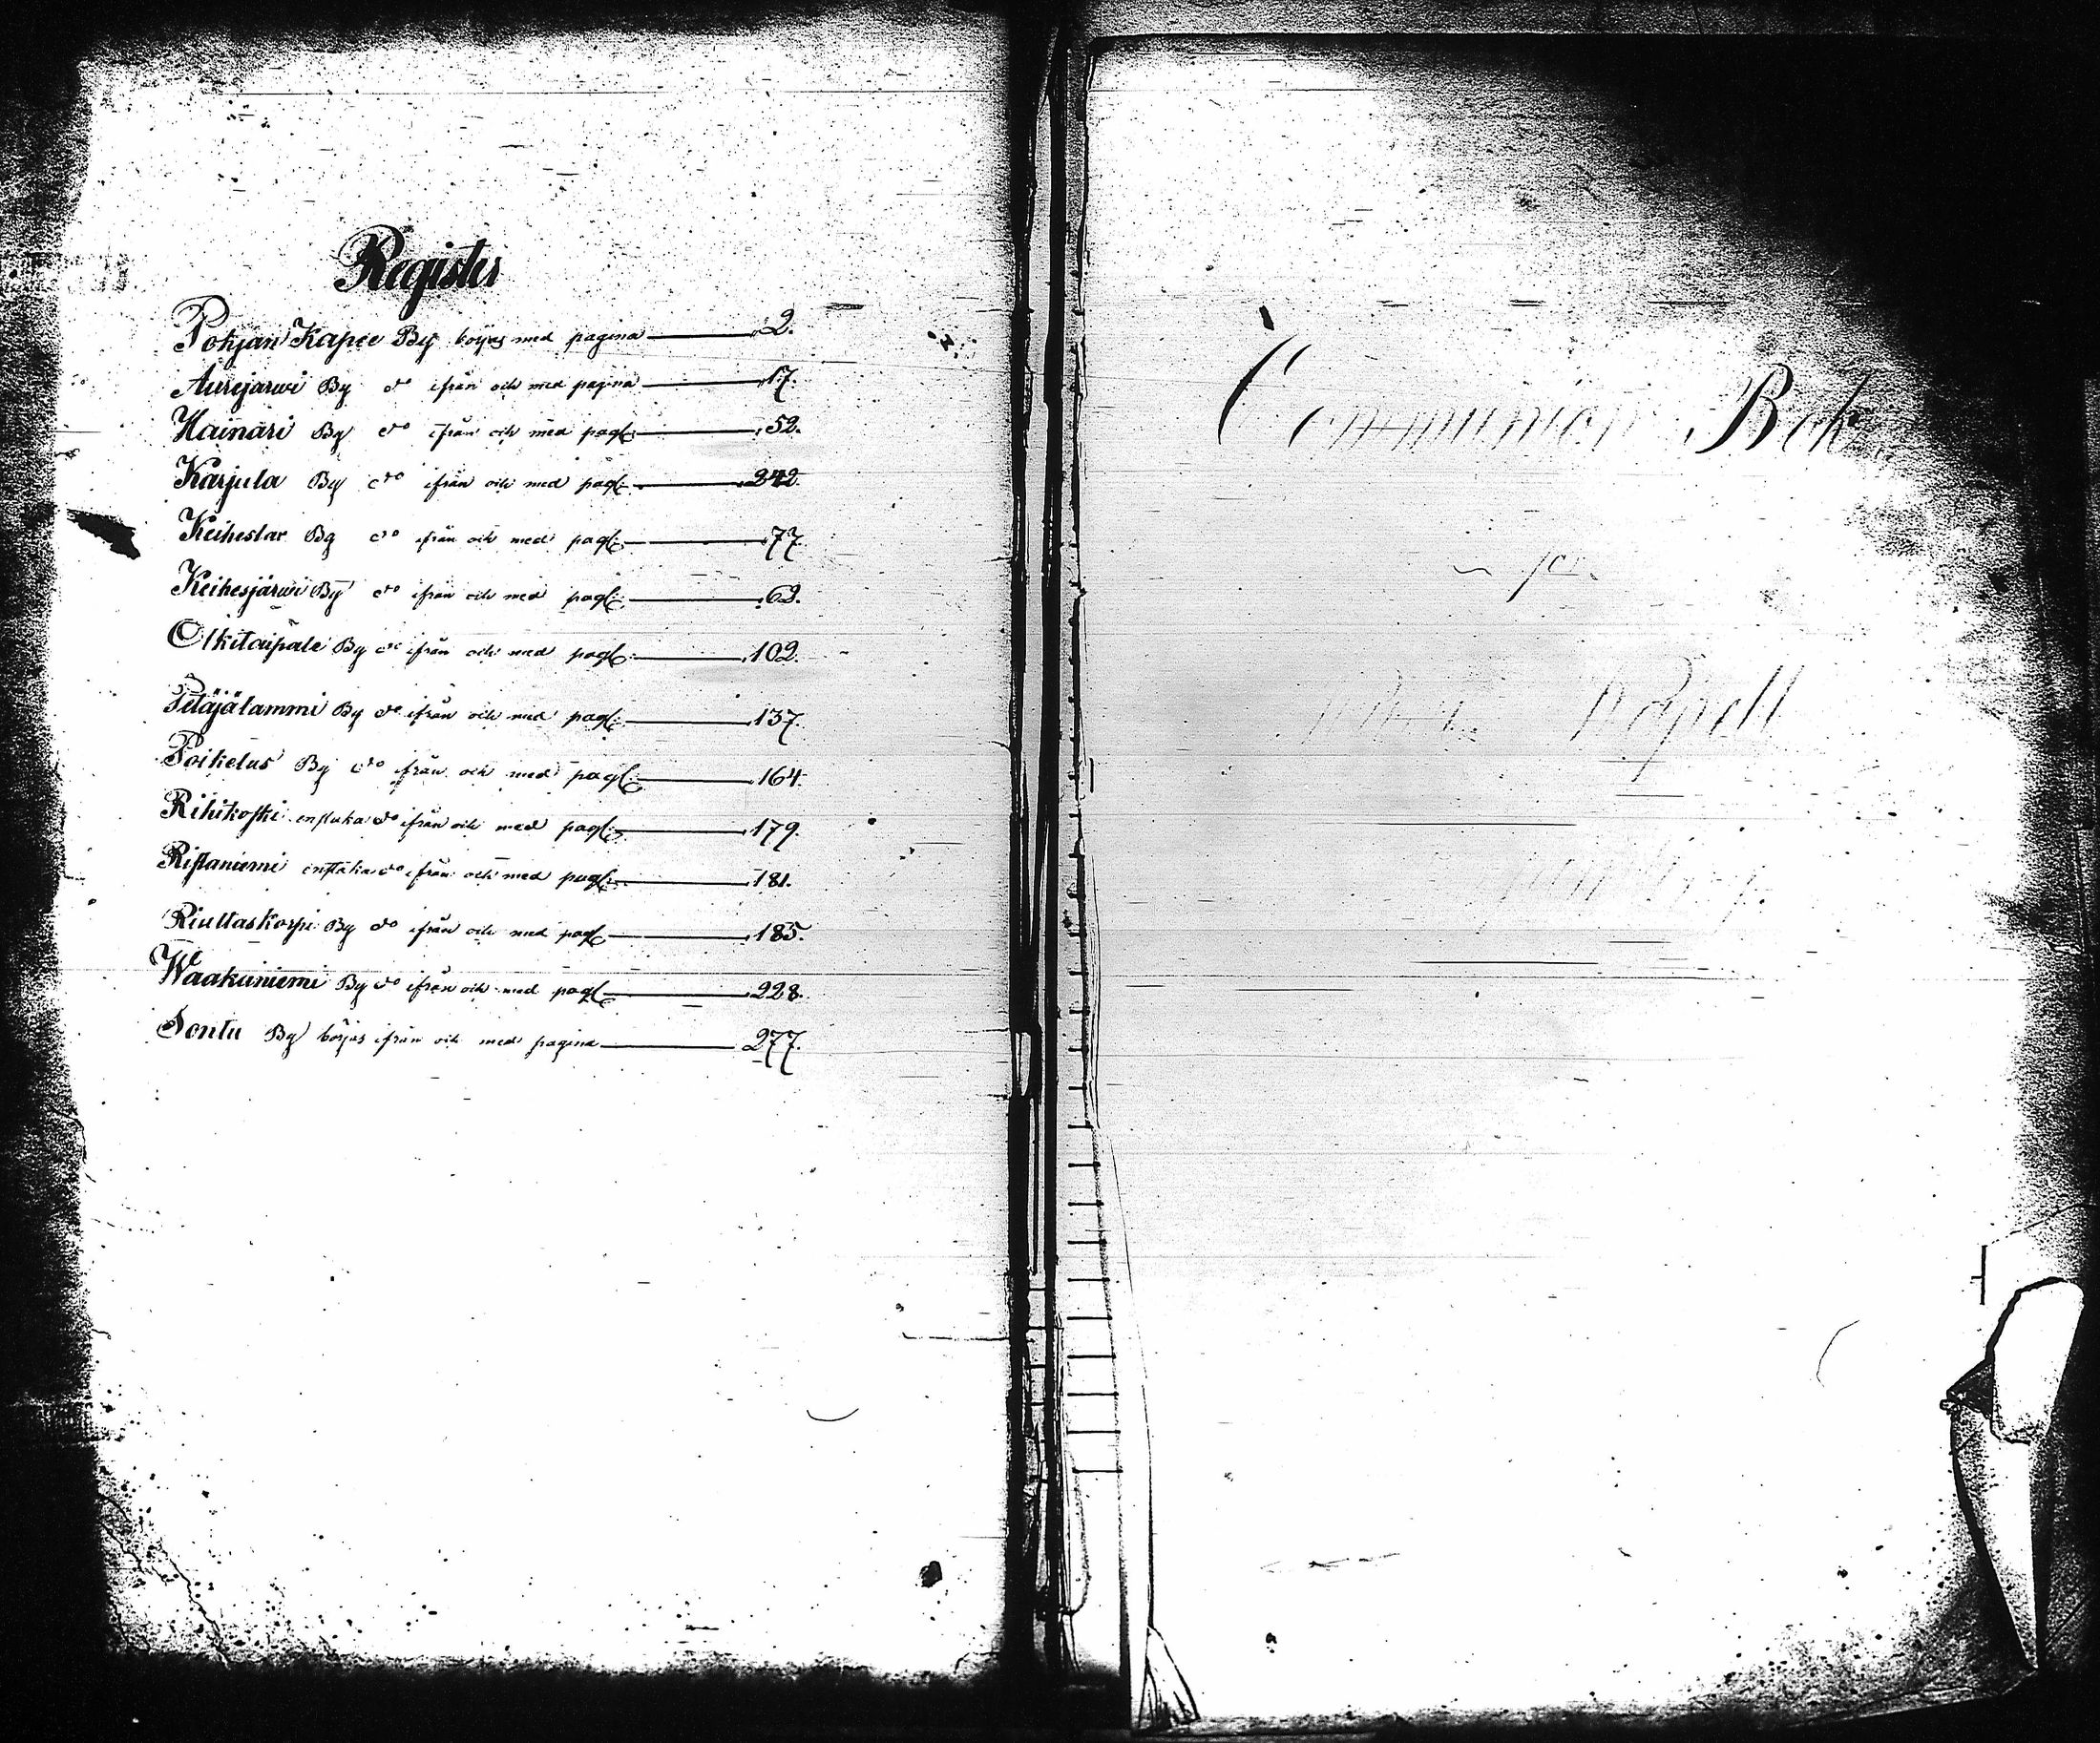 Register
Pohjan Kapee By börjas med pagina 2.
Aurejärwi By do ifrån och med pagina 17.
Hainari By do ifrån och med pag: 52.
Karjula By do ifrån och med pag: 242.
Keiheslax By do ifrån och med pag: 77.
Keihesjärwi By do ifrån och med pag: 62.
Olkitaipale By do ifrån och med pag: 102.
Petäjälammi By do ifrån och med pag: 137.
Poikelus By do ifrån och med pag: 164.
Rihikoski enstaka do ifrån och med pag: 179.
Ristaniemi enstaka do ifrån och med pag: 181.
Riuttaskorpi By do ifrån och med pag: 185.
Waakuniemi By do ifrån och med pag: 228.
Sontu By börjas ifrån och med pagina 277.
Communion Bok
Kapell